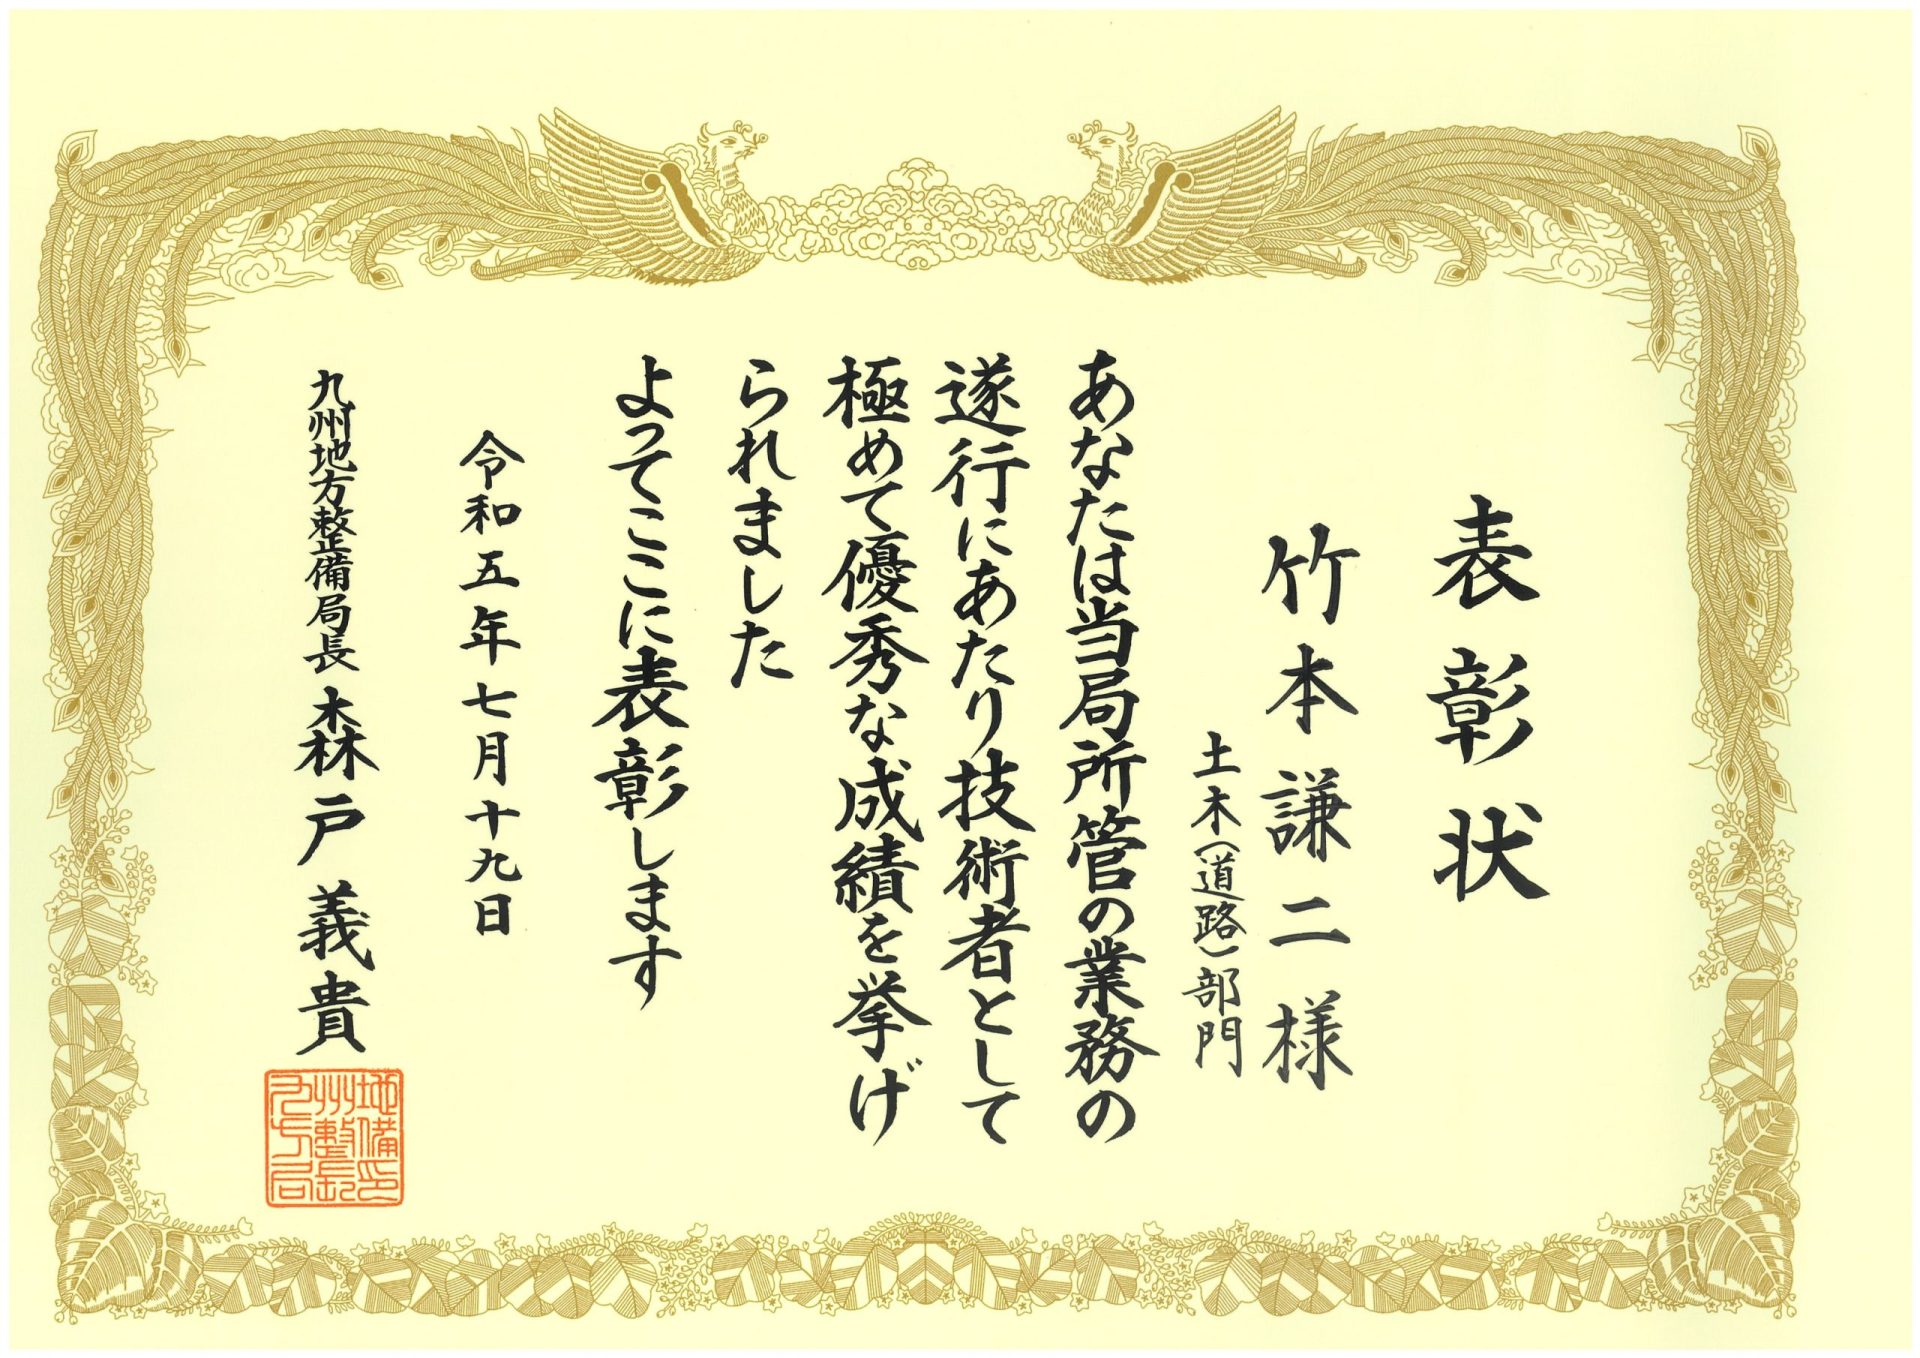 表彰状
竹本謙二様
土木(道路)部門
あなたは当局所管の業務の
遂行にあたり技術者として
極めて優秀な成績を挙げ
られました
よってここに表彰します
令和五年七月十九日
九州地方整備局長 森戸義貴
九州地方整備局長印